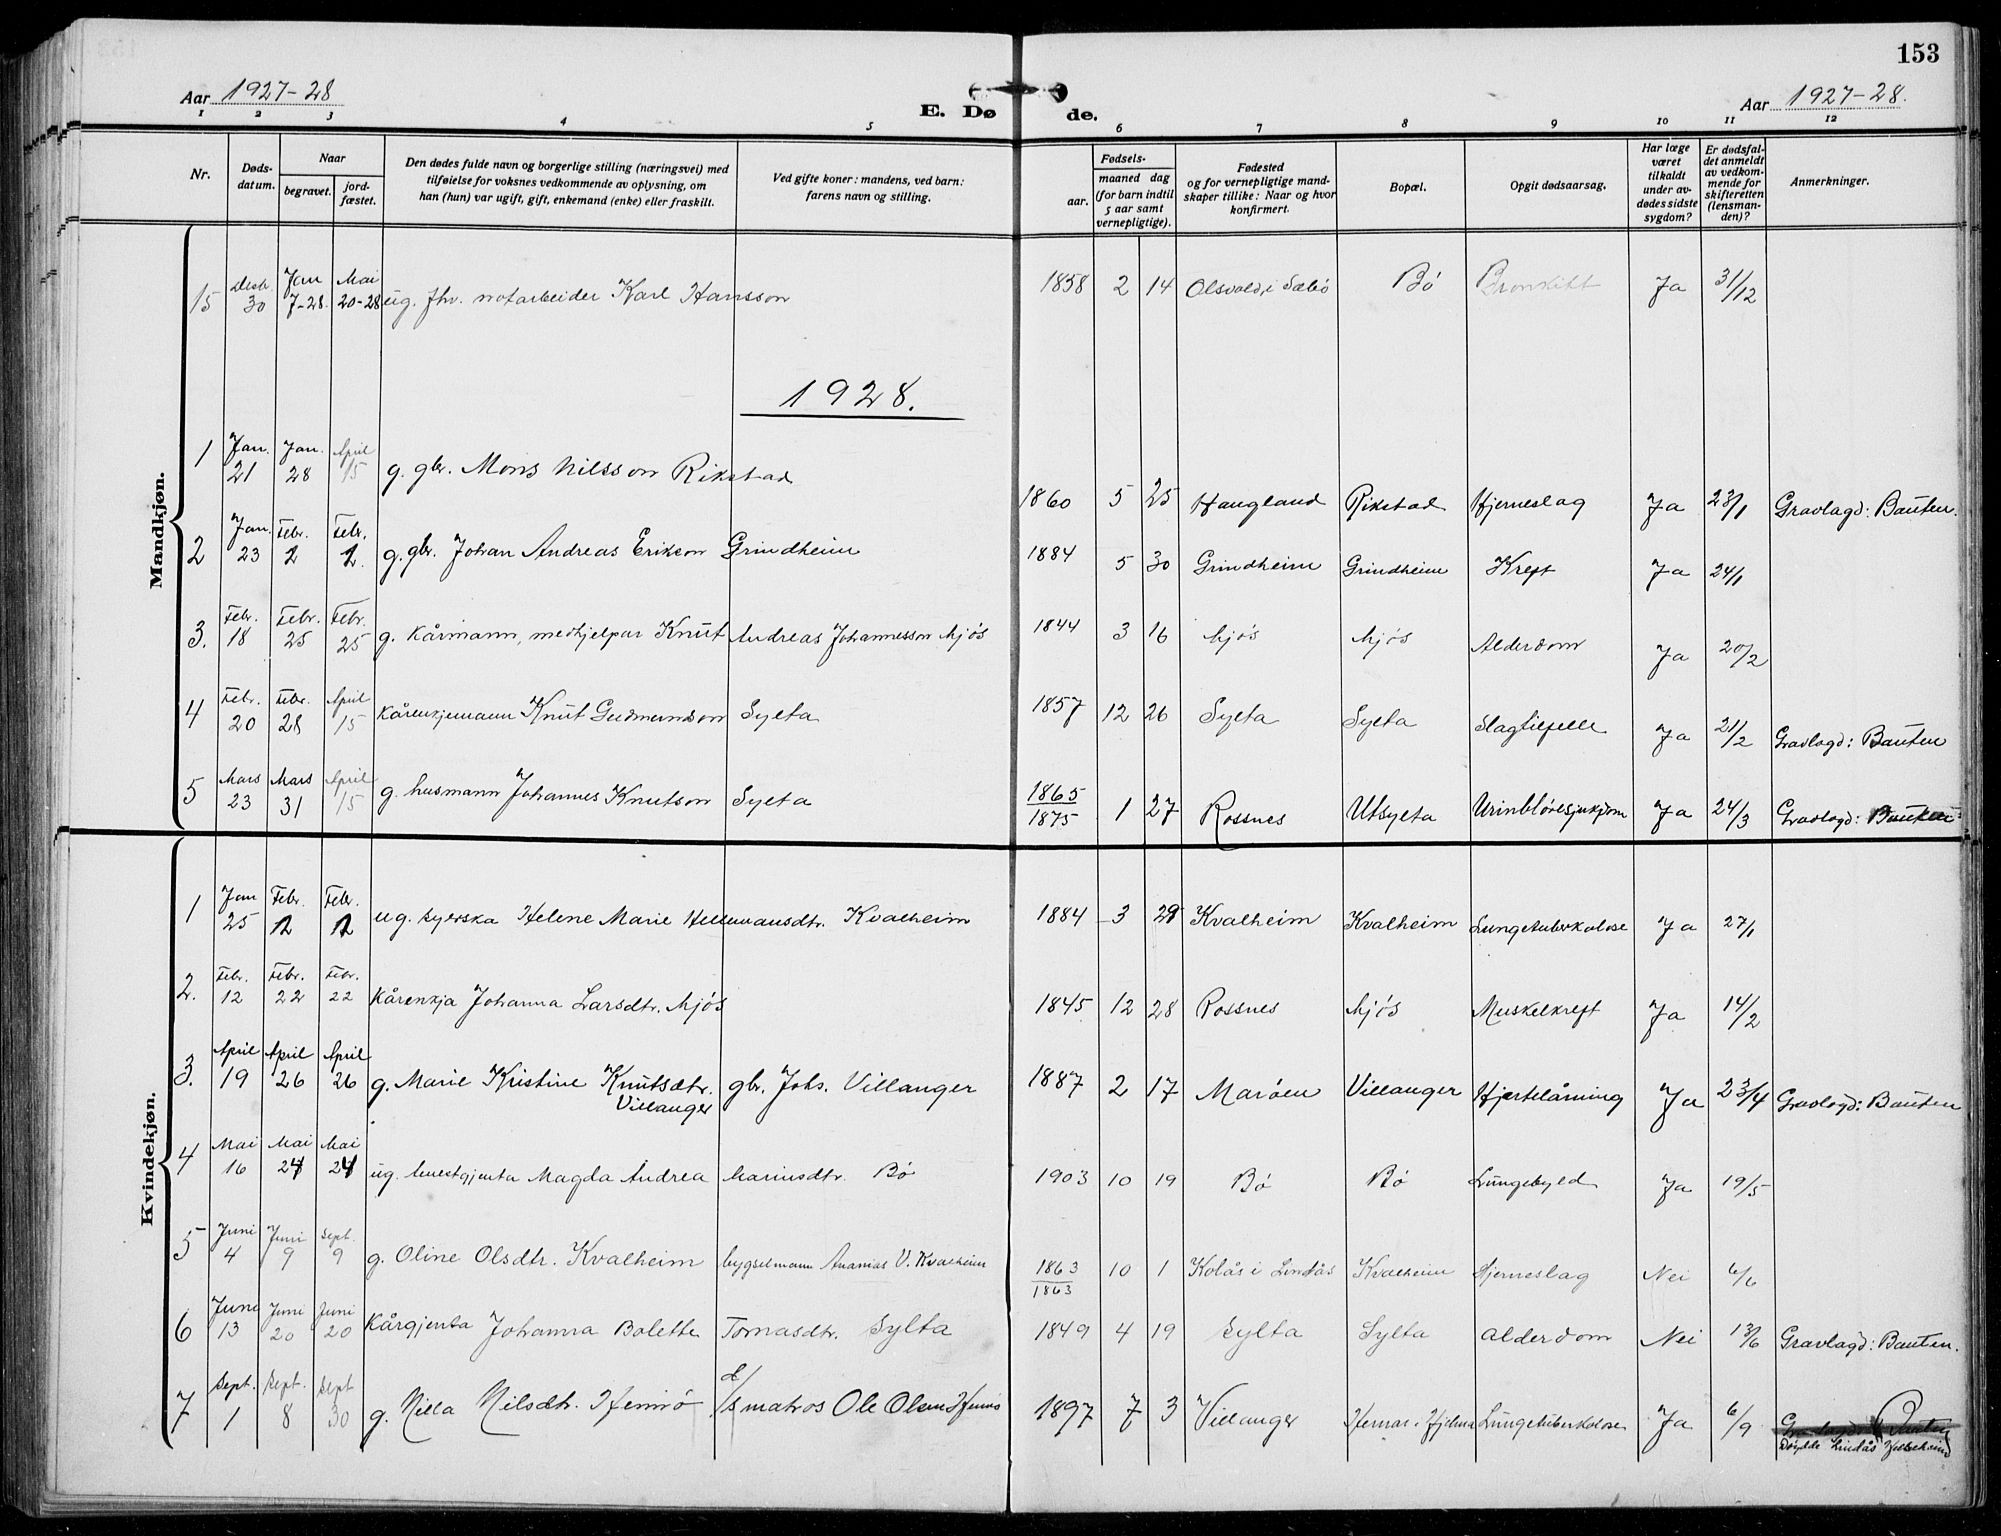 153
Aar 1927-28
E. Døde.
Aar 1927-28.
1 2 3 4 5 6 7 8 9 10 11 12
Nr.
Døds-
datum.
Naar
begravet.
jord-
fæstet.
Den dødes fulde navn og borgerlige stilling (næringsvei) med
tilføielse for voksnes vedkommende av oplysning, om
han (hun) var ugift, gift, enkemand (enke) eller fraskilt.
Ved gifte koner: mandens, ved barn:
farens navn og stilling.
Fødsels-
aar.
maaned dag
(for barn indtil
5 aar samt
vernepligtige).
Fødested
og for vernepligtige mand-
skaper tillike: Naar og hvor
konfirmert.
Bopæl.
Opgit dødsaarsag.
Har læge
været
tilkaldt
under av-
dødes sidste
sygdom?
Er dødsfal-
det anmeldt
av vedkom-
mende for
skifteretten
(lensman-
den)?
Anmerkninger.
Mandkjøn.
15 Desbr. 30 Jan 7-28. Mai 20-28 ug. fhv. notarbeider Karl Hansson 1858 2 14 Olsvold i Sæbø Bø Bronkitt Ja 31/12
1928.
1 Jan. 21 Jan. 28 April 15 g. gbr. Mons Nilsson Rikstad 1860 5 25 Haugland Rikstad Hjerneslag Ja 23/1 Gravlagd: Bauten.
2 Jan. 23 Febr. 2 Febr. 2. g. gbr. Johan Andreas Erikson Grindheim 1884 5 30 Grindheim Grindheim Kreft Ja 24/1
3. Febr. 18 Febr. 25 Febr. 25 g. kårmann, medhjelpar Knut Andreas Johannesson Mjøs 1844 3 16 Mjøs Mjøs Alderdom Ja 20/2
4 Febr. 20 Febr. 28 April 15 kårenkjemann Knut Gudmundson Sylta 1857 12 26 Sylta Sylta Slagtilfelle Ja 21/2 Gravlagd: Bauten
5 Mars 23 Mars 31 April 15 g. husmann Johannes Knutson Sylta 1865/1875 1 27 Rossnes Utsylta Urinbløresjukdom Ja 24/3 Gravlagd: Bauten
Kvindekjøn.
1 Jan 25 Febr. 2 Febr. 2 ug. syerska Helene Marie Hellemansdtr. Kvalheim 1884 3 29 Kvalheim Kvalheim Lungetuberkolose Ja 27/1
2. Febr. 12 Febr. 22 Febr. 22 kårenkja Johanna Larsdtr. Mjøs 1845 12 28 Rossnes Mjøs Muskelkreft Ja 14/2
3. April 19 April 26 April 26 g. Marie Kristine Knutsdtr. Villanger gbr. Johs. Villanger 1887 2 17 Marøen Villanger Hjertelåming Ja 23/4 Gravlagd: Bauten
4 Mai 16 Mai 24 Mai 24 ug. hushjenta Magda Andrea Mariusdtr. Bø 1903 10 19 Bø Bø Lungebyld Ja 19/5
5 Juni 4 Juni 9 Sept. 9 g. Oline Olsdtr. Kvalheim bygselmann Ananias V. Kvalheim 1863/1863 10 1 Kolås i Lindås Kvalheim Hjerneslag Nei 6/6
6 Juni 13 Juni 20 Juni 20 kårgjenta Johanna Bolette Tomasdtr. Sylta 1849 4 19 Sylta Sylta alderdom Nei 13/6 Gravlagd: Bauten.
7 Sept. 1 Sept. 8 Sept 30 g. Nilla Nilsdtr. Hjennø d/s matros Ole Olsen 1897 7 3 Villanger Hernar i Hjelme Lungetuberkolose Ja 6/9 Gravlagd: Bauten